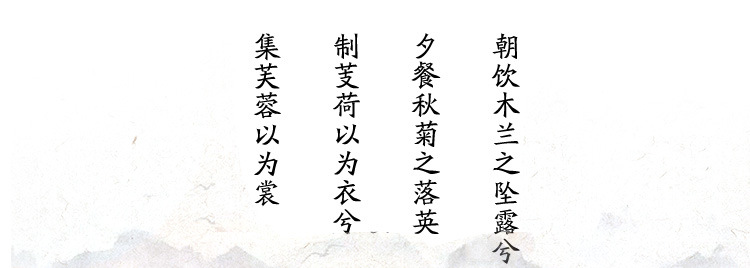 朝饮木兰之坠露兮
夕餐秋菊之落英
制芰荷以为衣兮
集芙蓉以为裳